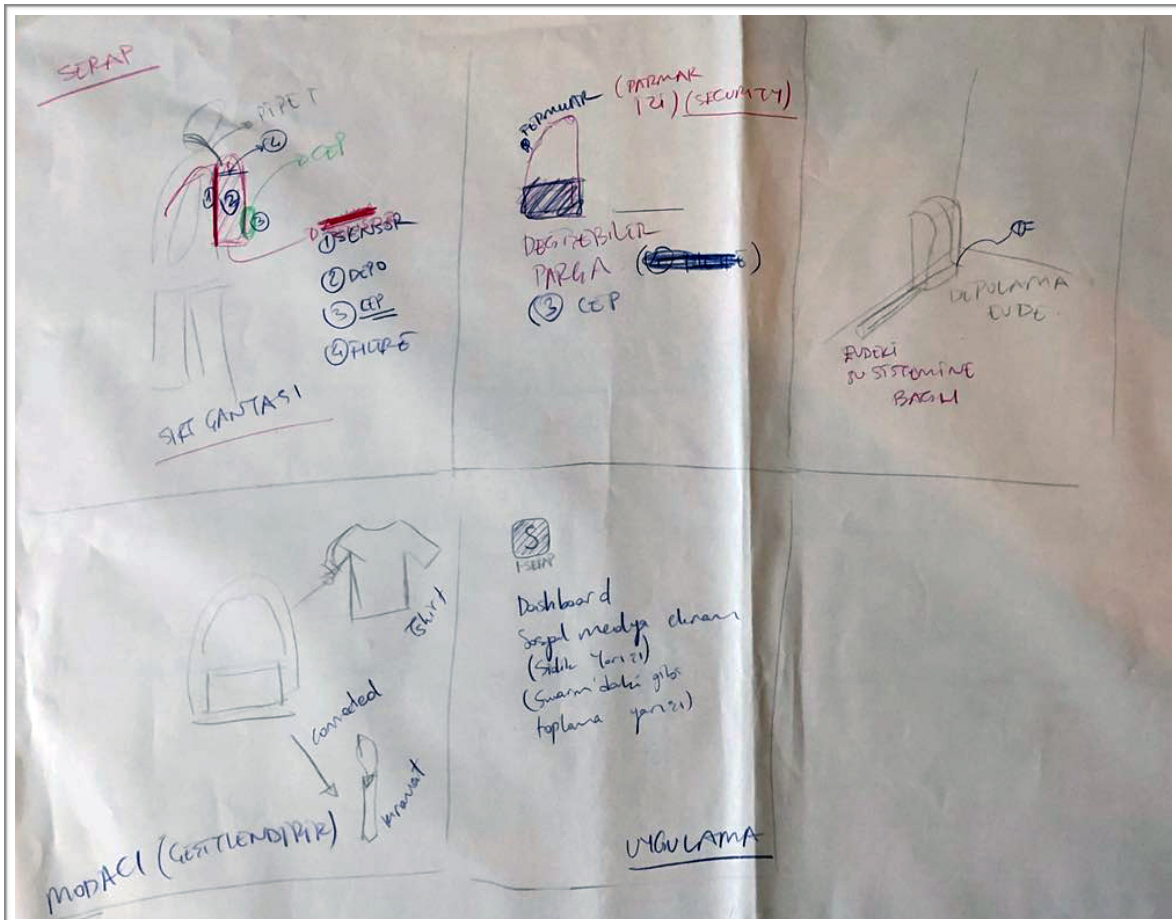 SERAP
PIPET
4
CEP
1
2
3
① SENSOR
② DEPO
③ CEP
④ FILTRE
SIRT ÇANTASI
FERMUAR
(PARMAK
IZI) (SECURITY)
DEĞİŞEBİLİR
PARÇA
③ CEP
DEPOLAMA
EVDE
EVDEKİ
SU SİSTEMİNE
BAĞLI
Tshirt
connected
kravat
MODACI (ÇEŞİTLENDİRİR)
S
I-SERAP
Dashboard
Sosyal medya ekranı
(Sidik Yarışı)
(Swarm'daki gibi
toplama yarışı)
UYGULAMA